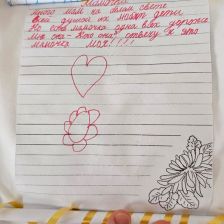 Мамочка
Много мам на белом свете
Всей душой их любят дети
Но есть мамочка одна всех дороже
Мне она - Кто она? отвечу я это
мамочка Моя!!!!